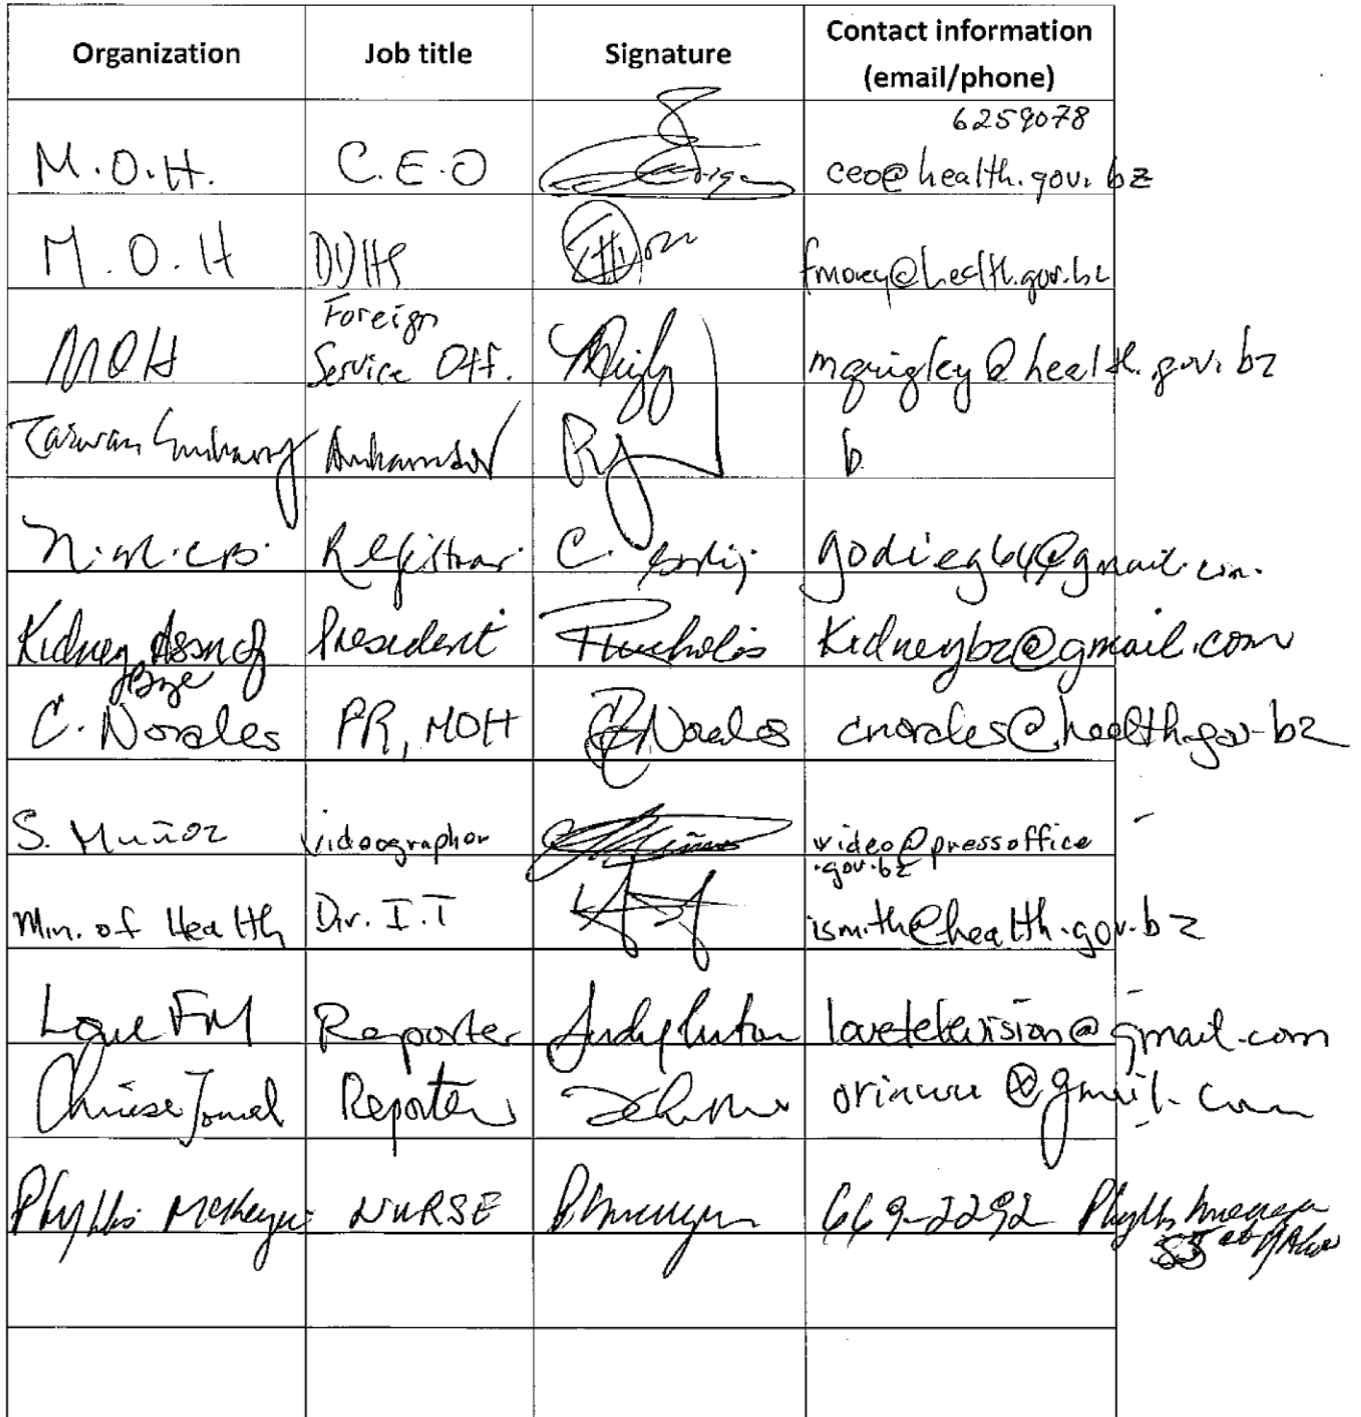 Organization Job title Signature Contact information
(email/phone)
6259078
M.O.H. C.E.O ceo@health.gov.bz
M.O.H DDHS @health.gov.bz
Foreign
MOH Service Off. mquigley@health.gov.bz
Taiwan Embassy Ambassador
Registrar C. godieg64@gmail.com.
Kidney Assn of President Kidneybz@gmail.com
Bze
C. Norales PR, MOH Norales cnorales@health.gov.bz
S. Muñoz Videographer video@pressoffice
.gov.bz
Min. of Health Dir. I.T ismith@health.gov.bz
Love FM Reporter lovetelevision@gmail.com
Chinese Jornal Reporter @gmail.com
Phyllis NURSE 669-2292 Phyllis